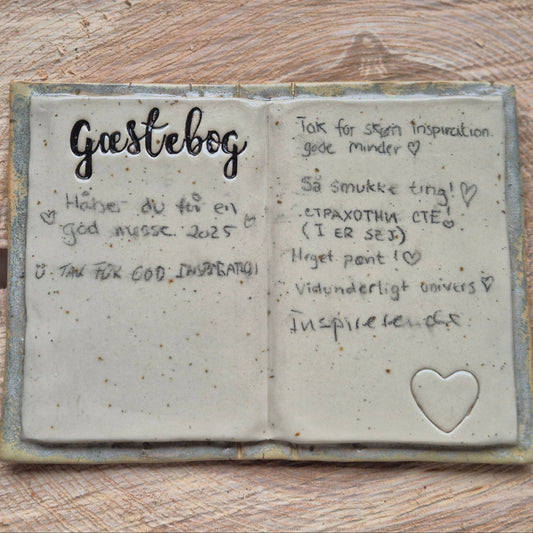 Gæstebog
Håber du får en
god messe 2025
TAK FÜR GOD INSPIRATION!
Tak for skøn inspiration.
gode minder ♡
Så smukke ting! ♡
СТРАХОТНИ СТЕ!
(I ER SEJ)
Meget pænt! ♡
Vidunderligt univers ♡
Inspirerende